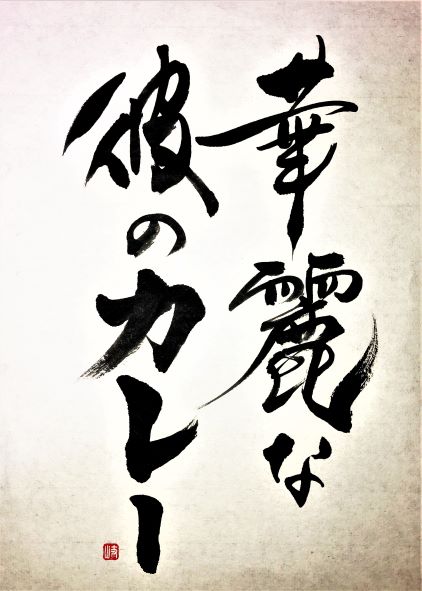 華麗な
彼のカレー